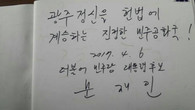 광주정신을 헌법에
계승하는 진정한 민주공화국!
2017. 4. 6
더불어 민주당 대통령후보
문 재 인